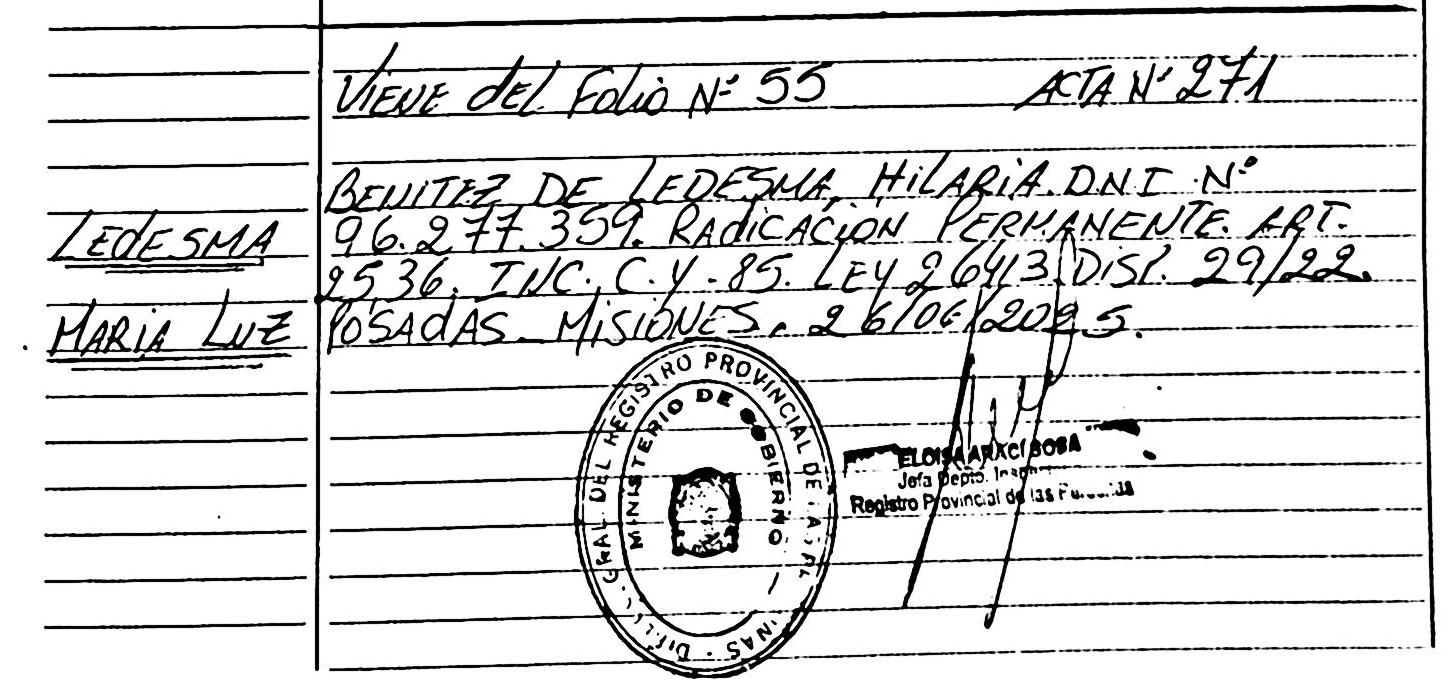 Viene del Folio Nº 55 ACTA Nº 271
BENITEZ DE LEDESMA, HilARiA. D.N.I. Nº
LEDESMA
96.277.359. RAdiCACiON PERMANENTE. ART.
2536. INC. C. Y. 85. LEY 26413. DISP. 29/22.
MARiA LUZ
POSAdAS - MISIONES. 26/06/2025.
GRAL. DEL REGISTRO PROVINCIAL DE
MINISTERIO DE GOBIERNO
ELOISA ARACI SOSA
Jefa Depto.
Registro Provincial de las